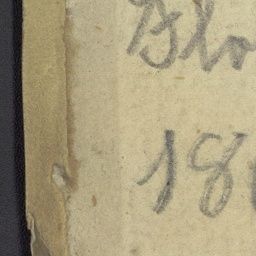 Flo
18